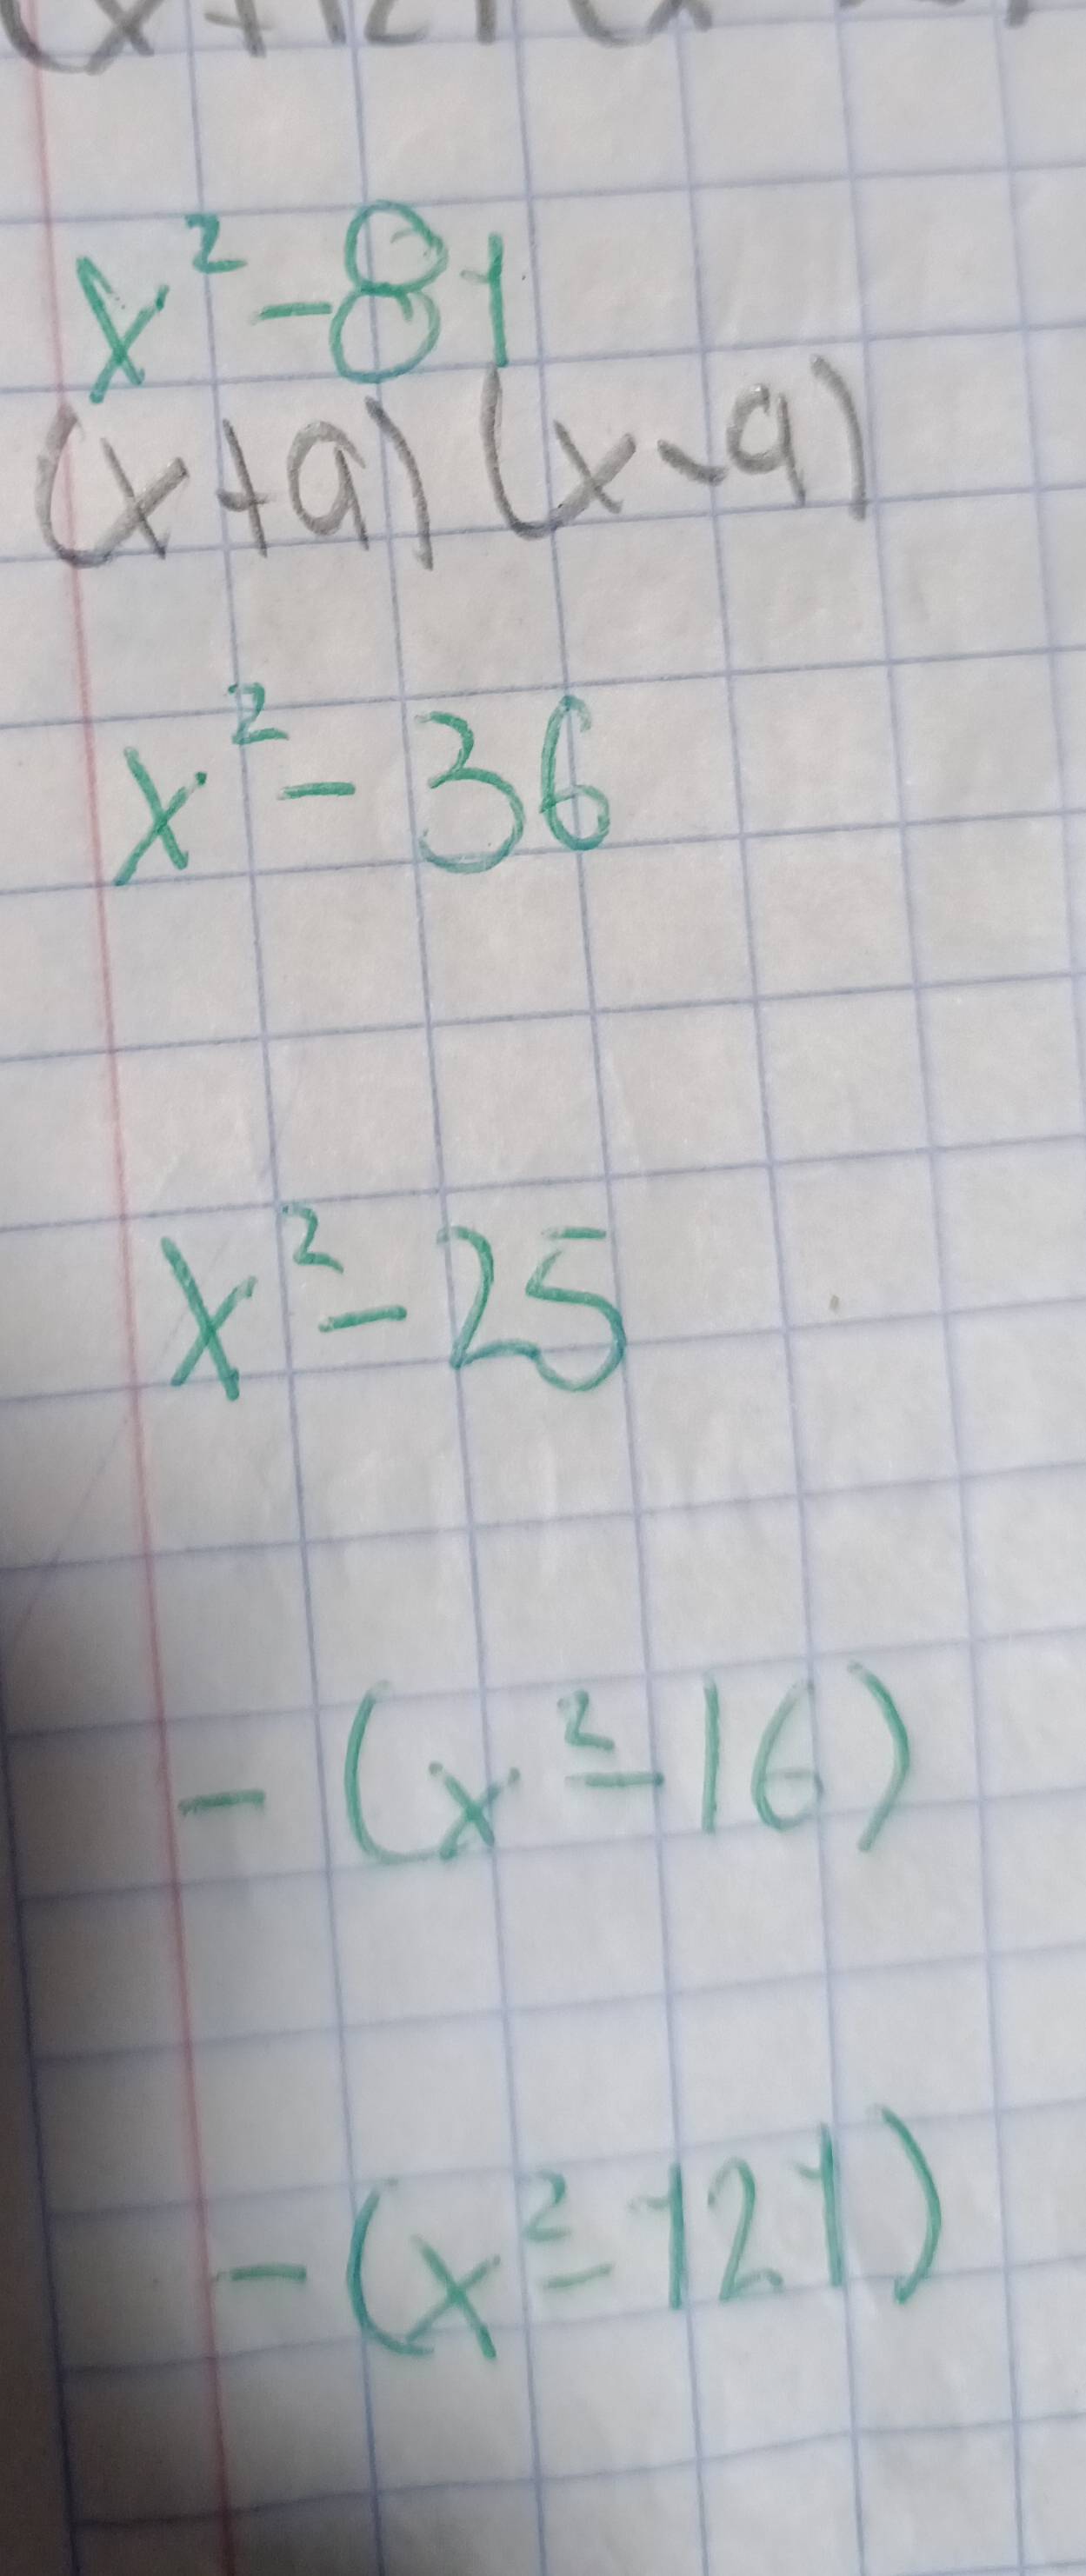 (x+12)(x
x² - 81
(x+9)(x-9)
x² - 36
x² - 25
- (x² - 16)
- (x² - 121)